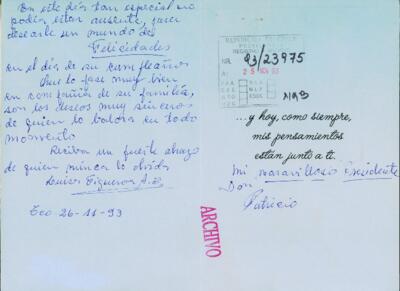 En este día tan especial no
podía estar ausente, para
desearle un mundo de
Felicidades
en el día de su cumpleaños
Que lo pase muy bien
en compañía de su familia,
son los deseos muy sinceros
de quien lo valora en todo
momento
Reciba un fuerte abrazo
de quien nunca lo olvida
Luisa Figueroa A.
Tco-26-11-93
REPUBLICA
NR. 93/23975
A: 25 NOV 93
...y hoy, como siempre,
mis pensamientos
están junto a ti.
Mi maravilloso Presidente
Don
Patricio
ARCHIVO